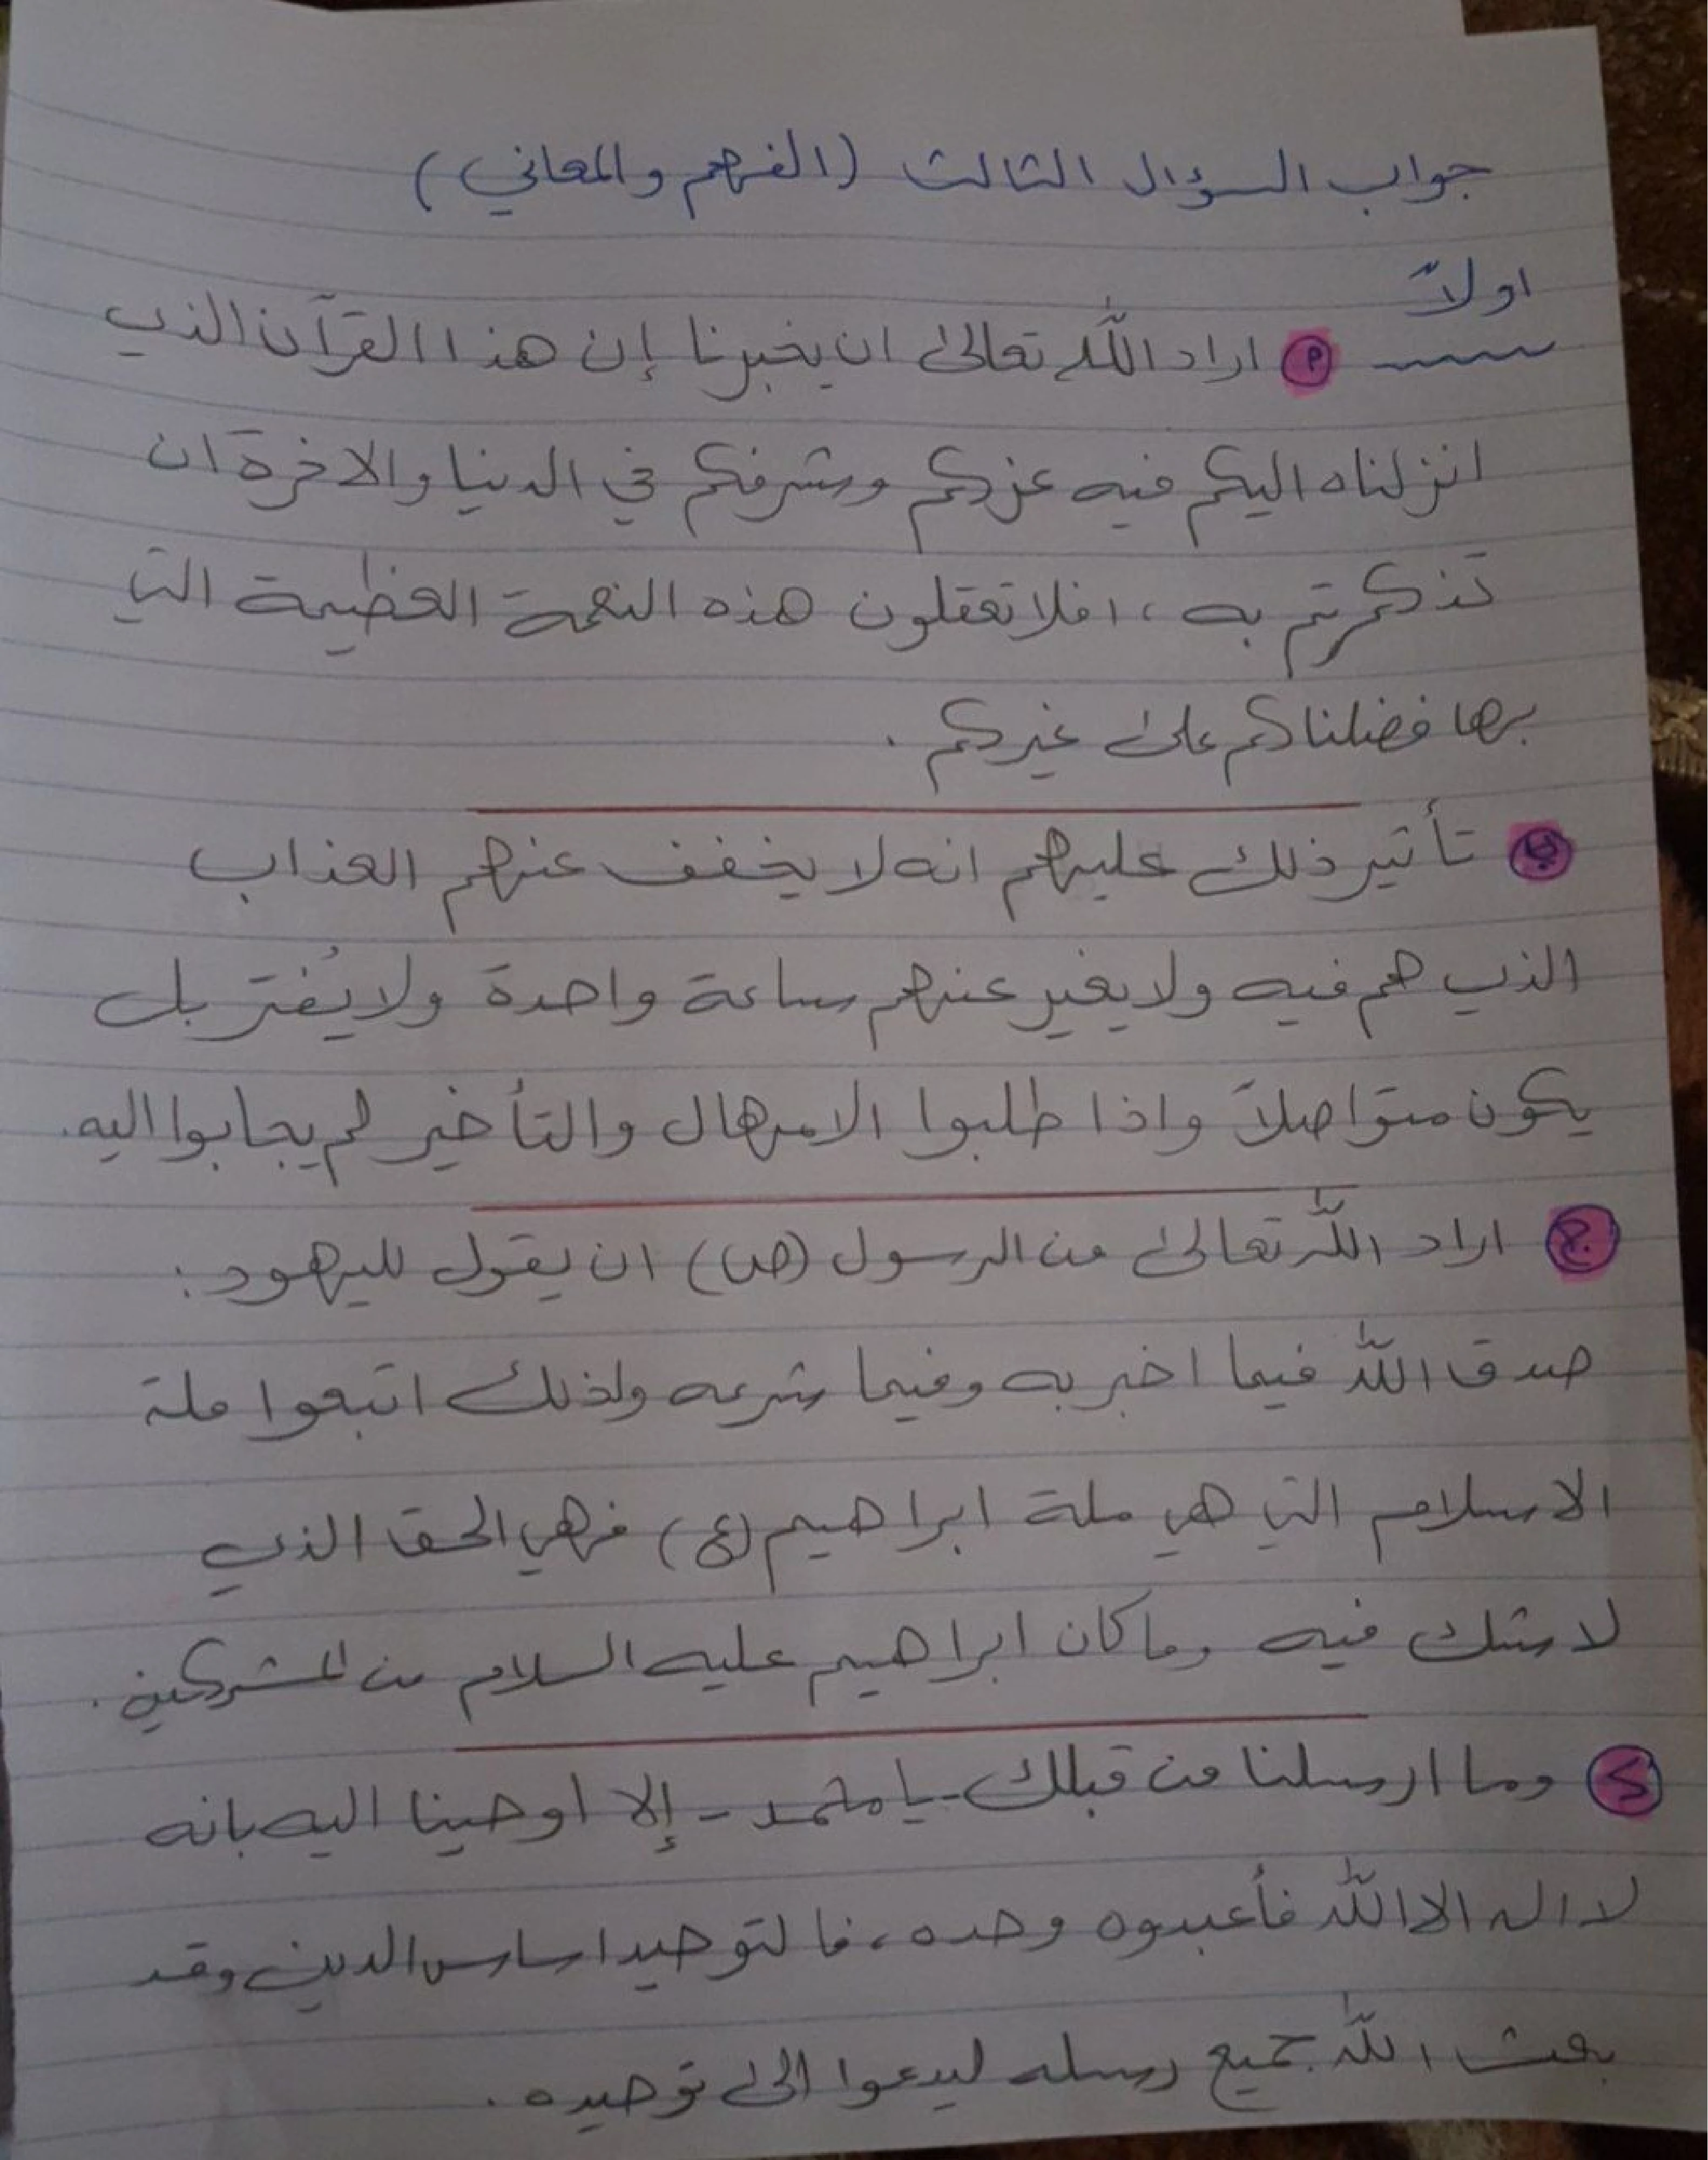 جواب السؤال الثالث (الفهم والمعاني)
اولاً
أ اراد الله تعالى ان يخبرنا إن هذا القرآن الذي
انزلناه اليكم فيه عزكم وشرفكم في الدنيا والاخرة ان
تذكرتم به ، افلا تعقلون هذه النعمة العظيمة التي
بها فضلناكم على غيركم .
ب تأثير ذلك عليهم انه لا يخفف عنهم العذاب
الذي هم فيه ولا يغير عنهم ساعة واحدة ولا يُفتر بل
يكون متواصلاً واذا طلبوا الامهال والتأخير لم يجابوا اليه.
ج اراد الله تعالى من الرسول (ص) ان يقول لليهود :
صدق الله فيما اخبر به وفيما شرعه ولذلك اتبعوا ملة
الاسلام التي هي ملة ابراهيم (ع) فهي الحق الذي
لا شك فيه وما كان ابراهيم عليه السلام من المشركين .
د وما ارسلنا من قبلك - يا محمد - إلا اوحينا اليه بانه
لا اله الا الله فأعبدوه وحده ، فالتوحيد اساس الدين وقد
بعث الله جميع رسله ليدعوا الى توحيده .